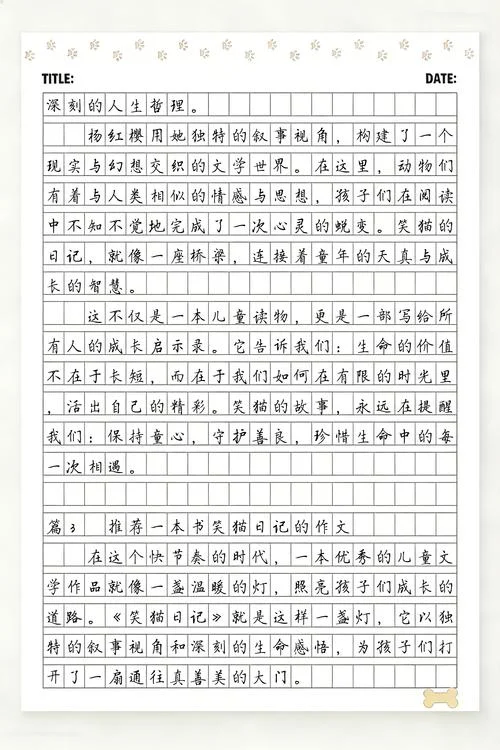 TITLE: DATE:
深刻的人生哲理。
杨红樱用她独特的叙事视角，构建了一个
现实与幻想交织的文学世界。在这里，动物们
有着与人类相似的情感与思想，孩子们在阅读
中不知不觉地完成了一次心灵的蜕变。笑猫的
日记，就像一座桥梁，连接着童年的天真与成
长的智慧。
这不仅是一本儿童读物，更是一部写给所
有人的成长启示录。它告诉我们：生命的价值
不在于长短，而在于我们如何在有限的时光里
，活出自己的精彩。笑猫的故事，永远在提醒
我们：保持童心，守护善良，珍惜生命中的每
一次相遇。
篇3 推荐一本书笑猫日记的作文
在这个快节奏的时代，一本优秀的儿童文
学作品就像一盏温暖的灯，照亮孩子们成长的
道路。《笑猫日记》就是这样一盏灯，它以独
特的叙事视角和深刻的生命感悟，为孩子们打
开了一扇通往真善美的大门。